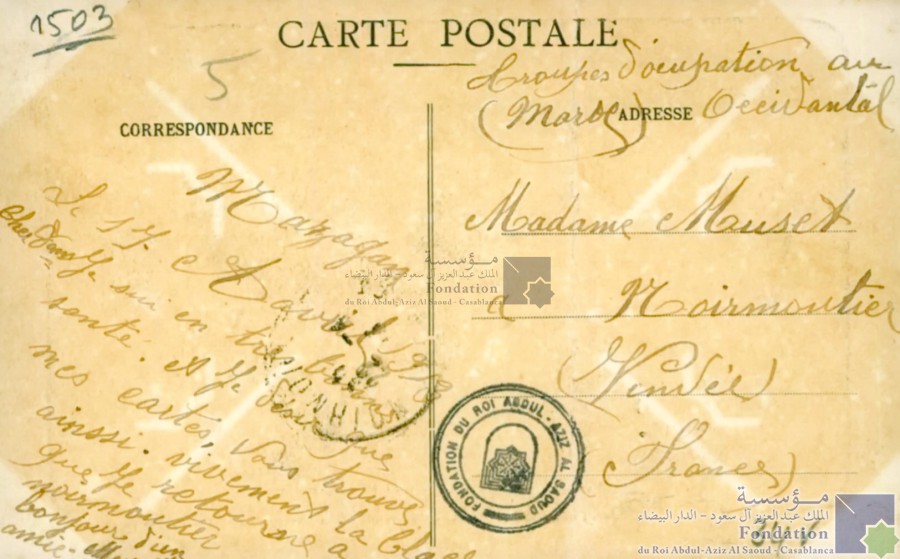 1503
CARTE POSTALE
5
troupes d'ocupation au
(Maroc) Occidantâl
CORRESPONDANCE
ADRESSE
Mazagan
Le 17 Avril 1908
Cher Dame Je sui en très bonne
santé. et Je desire que
mes cartes, vous trouve
ainssi. vivement la
que Je retourne a
noirmoutier
bonjour d'un
amie
Madame Muset
a Noirmoutier
(Vendée)
(France)
مؤسسة
الملك عبد العزيز آل سعود - الدار البيضاء
Fondation
du Roi Abdul-Aziz Al Saoud - Casablanca
FONDATION DU ROI ABDUL-AZIZ AL SAOUD
مؤسسة
الملك عبد العزيز آل سعود - الدار البيضاء
Fondation
du Roi Abdul-Aziz Al Saoud - Casablanca